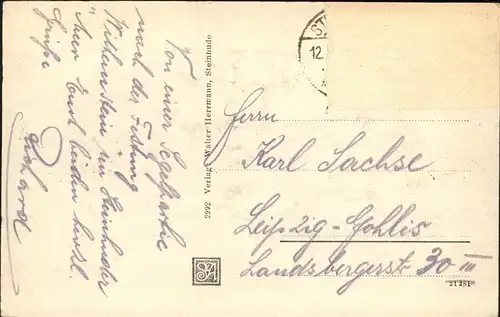 Von einer Segelpartie
nach der Festung
Wilhelmstein im Steinhuder
Meer Euch beiden herzl.
Grüße
Richard
2992 Verlag: Walter Herrmann, Steinhude
ST
12.
Herrn
Karl Sachse
Leipzig-Gohlis
Landsbergerstr 30 III
21281